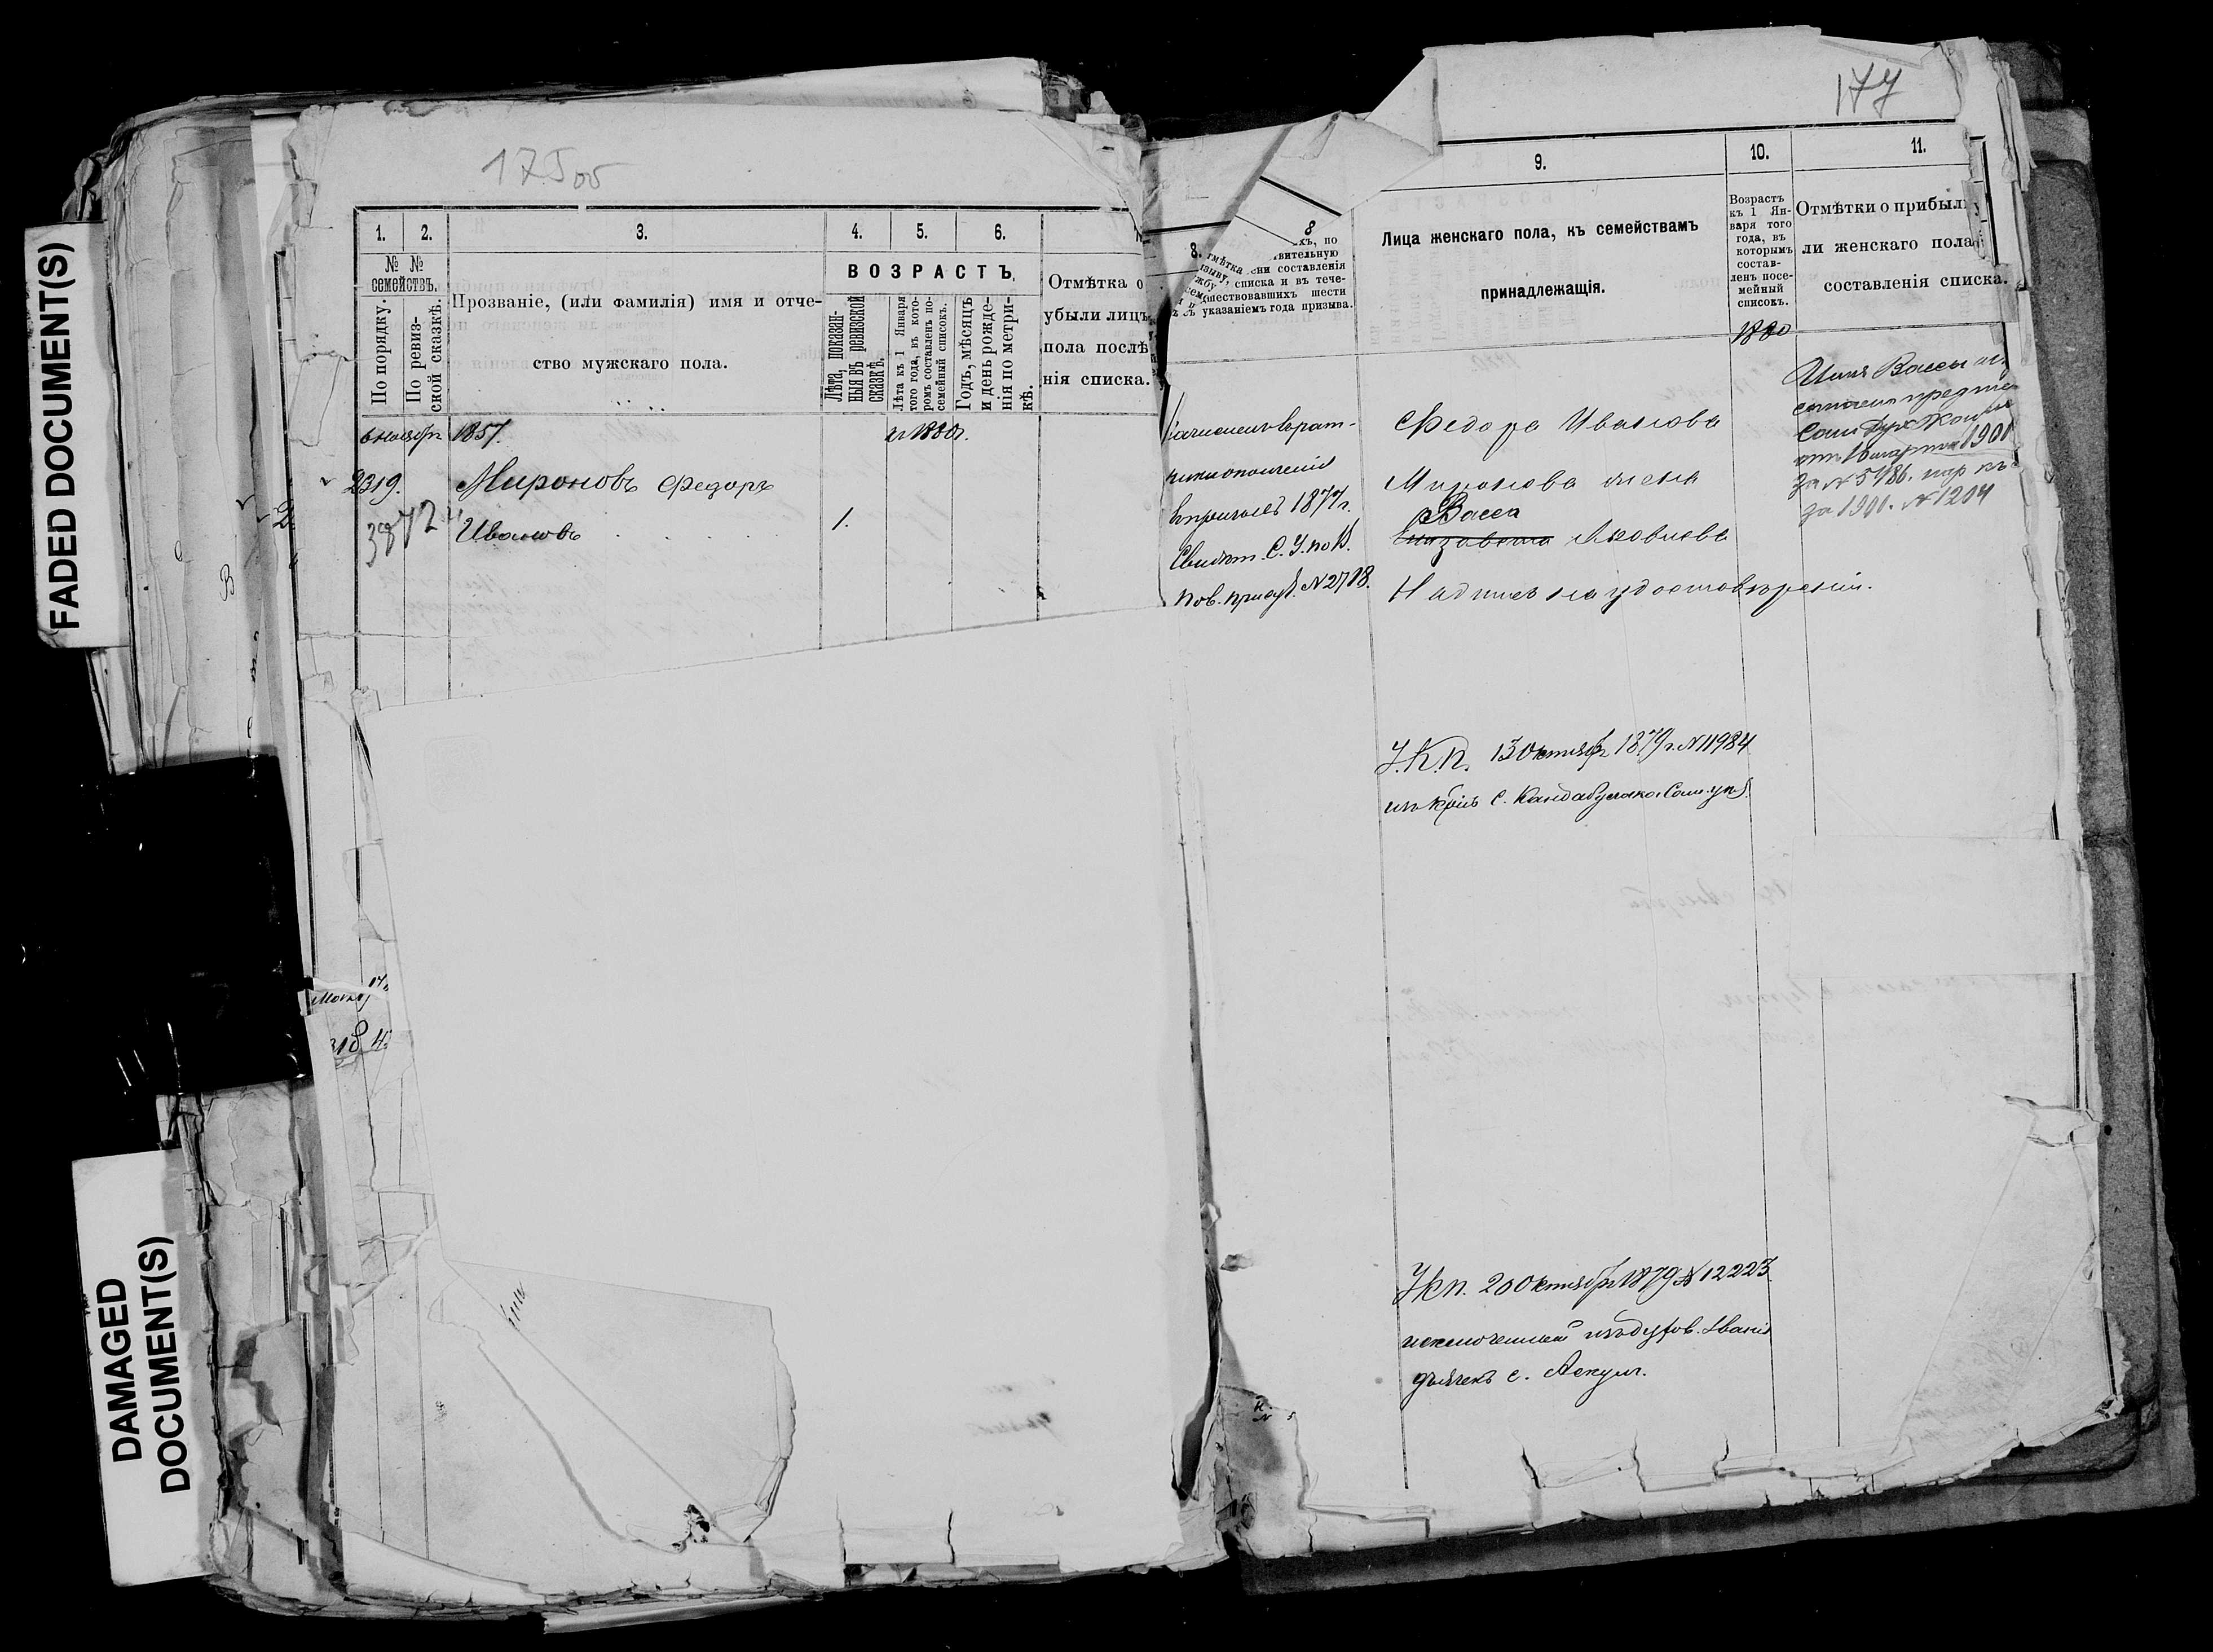 FADED DOCUMENT(S)
DAMAGED
DOCUMENT(S)
175 об
1. 2. 3. 4. 5. 6.
№ №
семействъ.
По порядку.
По ревиз-
ской сказкѣ.
Прозваніе, (или фамилія) имя и отче-
ство мужскаго пола.
ВОЗРАСТЪ.
Лѣта, показан-
ныя въ ревизской
сказкѣ.
Лѣта къ 1 Января
того года, въ кото-
ромъ составленъ по-
семейный списокъ.
Годъ, мѣсяцъ
и день рожде-
нія по метри-
кѣ.
Отмѣтка о
убыли лицъ
пола послѣ
нія списка.
6 ноября 1857.
1880.
2319. Мироновъ Федоръ
3872 Ивановъ 1.
177
8. 8 9. 10. 11.
хъ, по
составленія
списка и въ тече-
шествовавшихъ шести
указаніемъ года призыва.
Лица женскаго пола, къ семействамъ
принадлежащія.
Возрастъ
къ 1 Ян-
варя того
года, въ
которымъ
состав-
ленъ посе-
мейный
списокъ.
1880
Отмѣтки о прибыл
ли женскаго пола
составленія списка.
Зачисленъ врат-
ники ополченія
въ призывъ 1877 г.
Свидѣт. С. У. по В.
пов. присут. № 2718.
Федора Иванова
Миронова жена
Васса
Елизавета Яковлева
Надпись на удостовѣреніи.
Имя Вассы
Сам. Дух. Конс
от 16 марта 1901
за № 5486. нар къ
за 1901. № 1204
У.К.П. 13 Октября 1879 г. № 11984
изъ крнъ с. Кандабулака Сам. уѣз.
УКП. 20 Октября 1879 № 12223
исключенный изъ духов. званія
дьячекъ с. Аскулы.